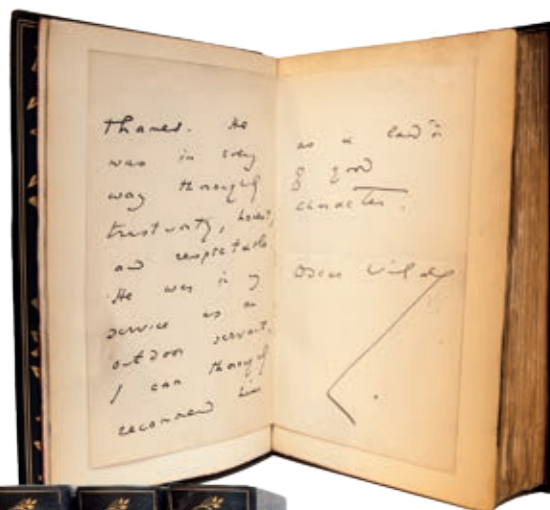 Thames. He
was in every
way thoroughly
trustworthy, honest,
and respectable
He was in my
service as an
outdoor servant,
I can thoroughly
recommend him
as a lad
of good
character.
Oscar Wilde